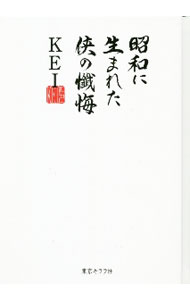 昭和に
生まれた
侠の懺悔
KEI
東京キララ社